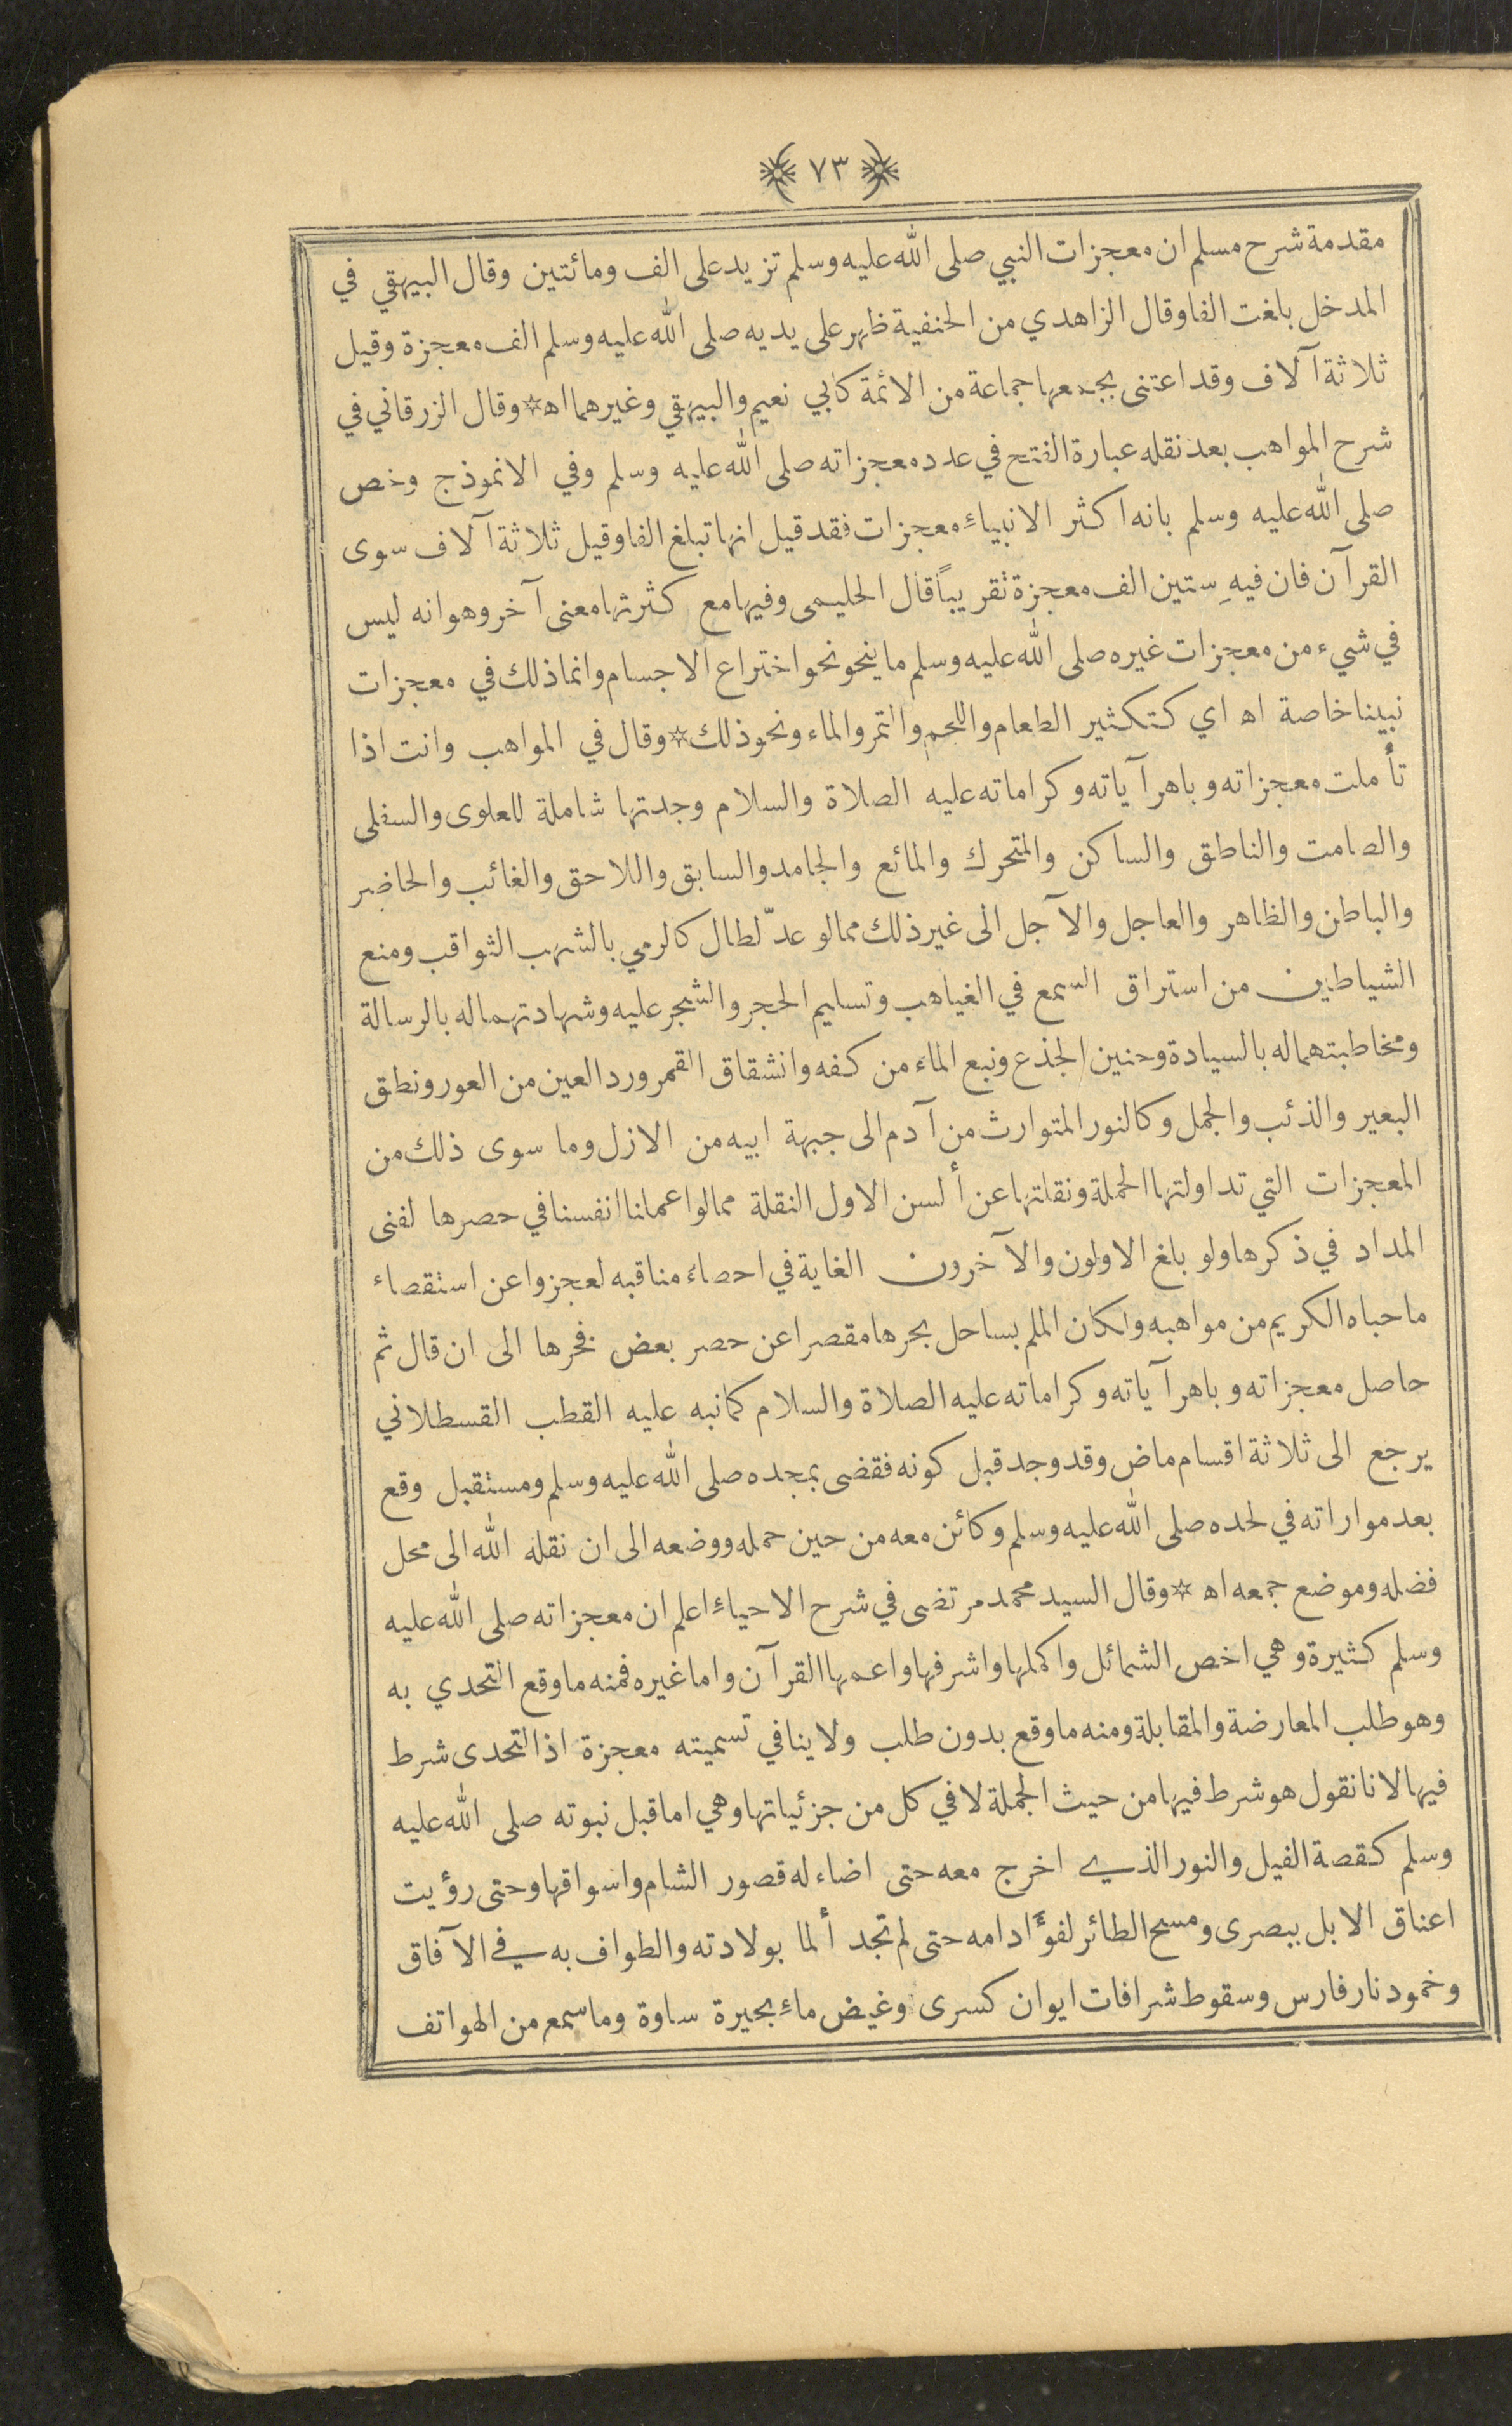 ٧٣
مقدمة شرح مسلم ان معجزات النبي صلى الله عليه وسلم تزيد على الف ومائتين وقال البيهقي في
المدخل بلغت الفا وقال الزاهدي من الحنفية ظهر على يديه صلى الله عليه وسلم الف معجزة وقيل
ثلاثة آلاف وقد اعتنى بجمعها جماعة من الائمة كابي نعيم والبيهقي وغيرهما اه * وقال الزرقاني في
شرح المواهب بعد نقله عبارة الفتح في عدد معجزاته صلى الله عليه وسلم وفي الانموذج وخص
صلى الله عليه وسلم بانه اكثر الانبياء معجزات فقد قيل انها تبلغ الفا وقيل ثلاثة آلاف سوى
القرآن فان فيهِ ستين الف معجزة تقريباً قال الحليمى وفيها مع كثرتها معنى آخر وهو انه ليس
في شيء من معجزات غيره صلى الله عليه وسلم ما ينحو نحو اختراع الاجسام وانما ذلك في معجزات
نبينا خاصة اه اي كتكثير الطعام واللحم والتمر والماء ونحو ذلك * وقال في المواهب وانت اذا
تأملت معجزاته وباهر آياته وكراماته عليه الصلاة والسلام وجدتها شاملة للعلوى والسفلى
والصامت والناطق والساكن والمتحرك والمائع والجامد والسابق واللاحق والغائب والحاضر
والباطن والظاهر والعاجل والآجل الى غير ذلك مما لو عدّ لطال كالرمي بالشهب الثواقب ومنع
الشياطين من استراق السمع في الغياهب وتسليم الحجر والشجر عليه وشهادتهما له بالرسالة
ومخاطبتهما له بالسيادة وحنين الجذع ونبع الماء من كفه وانشقاق القمر ورد العين من العور ونطق
البعير والذئب والجمل وكالنور المتوارث من آدم الى جبهة ابيه من الازل وما سوى ذلك من
المعجزات التي تداولتها الحملة ونقلتها عن ألسن الاول النقلة مما لو اعملنا انفسنا في حصرها لفنى
المداد في ذكرها ولو بلغ الاولون والآخرون الغاية في احصاء مناقبه لعجزوا عن استقصاء
ما حباه الكريم من مواهبه ولكان الملم بساحل بحرها مقصرا عن حصر بعض فخرها الى ان قال ثم
حاصل معجزاته وباهر آياته وكراماته عليه الصلاة والسلام كما نبه عليه القطب القسطلاني
يرجع الى ثلاثة اقسام ماض وقد وجد قبل كونه فقضى بمجده صلى الله عليه وسلم ومستقبل وقع
بعد مواراته في لحده صلى الله عليه وسلم وكائن معه من حين حمله ووضعه الى ان نقله الله الى محل
فضله وموضع جمعه اه * وقال السيد محمد مرتضى في شرح الاحياء اعلم ان معجزاته صلى الله عليه
وسلم كثيرة وهي اخص الشمائل واكملها واشرفها واعمها القرآن واما غيره فمنه ما وقع التحدي به
وهو طلب المعارضة والمقابلة ومنه ما وقع بدون طلب ولا ينافي تسميته معجزة اذ التحدى شرط
فيها لانا نقول هو شرط فيها من حيث الجملة لا في كل من جزئياتها وهي اما قبل نبوته صلى الله عليه
وسلم كقصة الفيل والنور الذي اخرج معه حتى اضاء له قصور الشام واسواقها وحتى رؤيت
اعناق الابل ببصرى ومسح الطائر لفؤاد امه حتى لم تجد ألما بولادته والطواف به في الآفاق
وخمود نار فارس وسقوط شرافات ايوان كسرى وغيض ماء بحيرة ساوة وما سمع من الهواتف